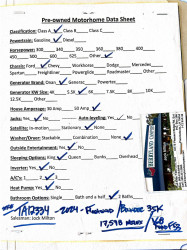 Pre-owned Motorhome Data Sheet
Classification: Class A ✓ Class B Class C
Powertrain: Gasoline ✓ Diesel
Horsepower: 300 340 350 360 380 400
450 500 600 605 Other ✓
Chassis: Ford ✓ Chevy Workhorse Dodge Mercedes
Spartan Freightliner Powerglide Roadmaster Other
Generator Brand: Onan ✓ Generac Powertech
Generator KW Size: 4K 5.5K ✓ 6K 7.5K 8K 10K
12.5K Other
House Amperage: 30 Amp 50 Amp ✓
Jacks: Yes ✓ No Auto-leveling: Yes ✓ No
Satellite: In-motion Stationary None ✓
Washer/Dryer: Stackable Combination None ✓
Outside Entertainment: Yes ✓ No
Sleeping Options: King ✓ Queen Bunks Overhead
Inverter: Yes ✓ No
A/C's: 1 2 ✓ 3
Heat Pump: Yes ✓ No
Bathroom Options: Single Bath and a half 2 Baths
Salesman: Jack Milton
2024
35K
17,598 MILES